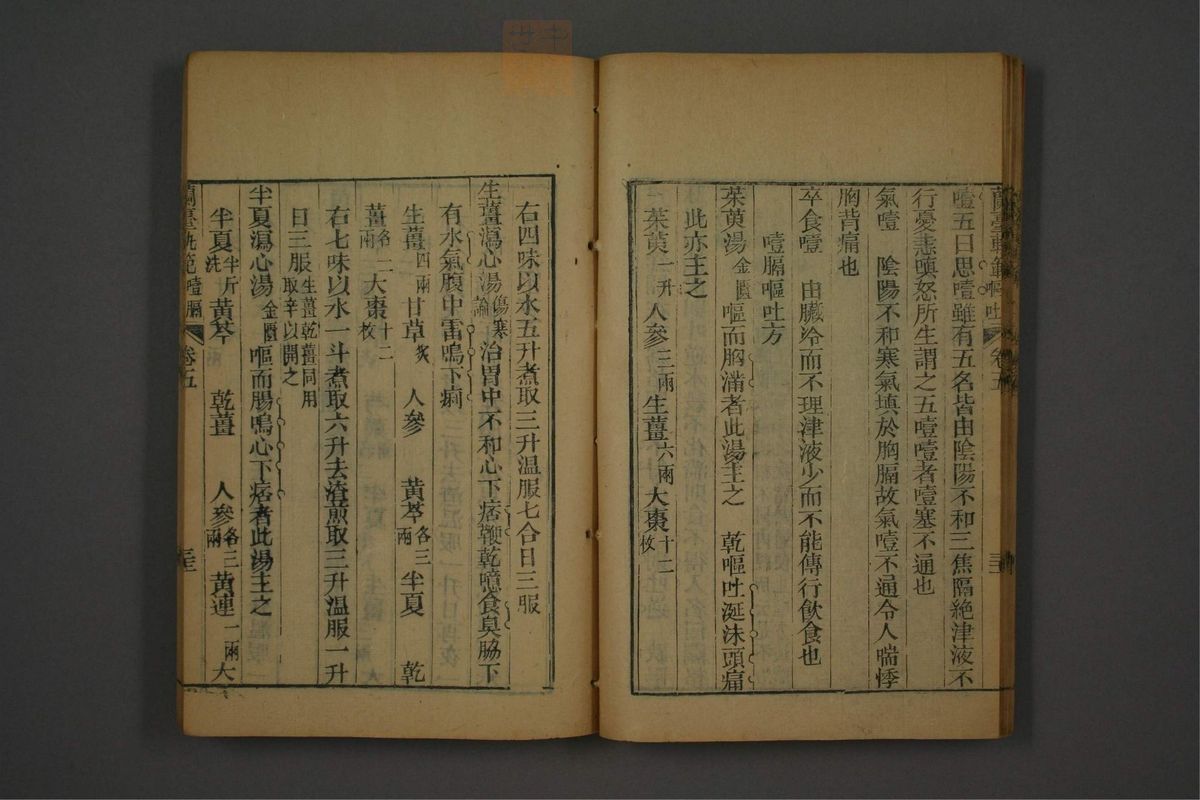 蘭臺軌範 嘔吐 卷五
噎五曰思噎雖有五名皆由陰陽不和三焦隔絶津液不
行憂恚嗔怒所生謂之五噎噎者噎塞不通也
氣噎 陰陽不和寒氣填於胸膈故氣噎不通令人喘悸
胸背痛也
卒食噎 由臟冷而不理津液少而不能傳行飲食也
噎膈嘔吐方
茱萸湯金匱 嘔而胸滿者此湯主之 乾嘔吐涎沫頭痛
此亦主之
茱萸一升 人參三兩 生薑六兩 大棗十二枚
右四味以水五升煮取三升溫服七合日三服
生薑瀉心湯傷寒論 治胃中不和心下痞鞕乾噫食臭脇下
有水氣腹中雷鳴下痢
生薑四兩 甘草炙 人參 黃芩各三兩 半夏 乾
薑各二兩 大棗十二枚
右七味以水一斗煮取六升去渣煎取三升溫服一升
日三服生薑乾薑同用取辛以開之
半夏瀉心湯金匱 嘔而腸鳴心下痞者此湯主之
半夏半斤洗 黃芩 乾薑 人參各三兩 黃連一兩 大
蘭臺軌範 噎膈 卷五